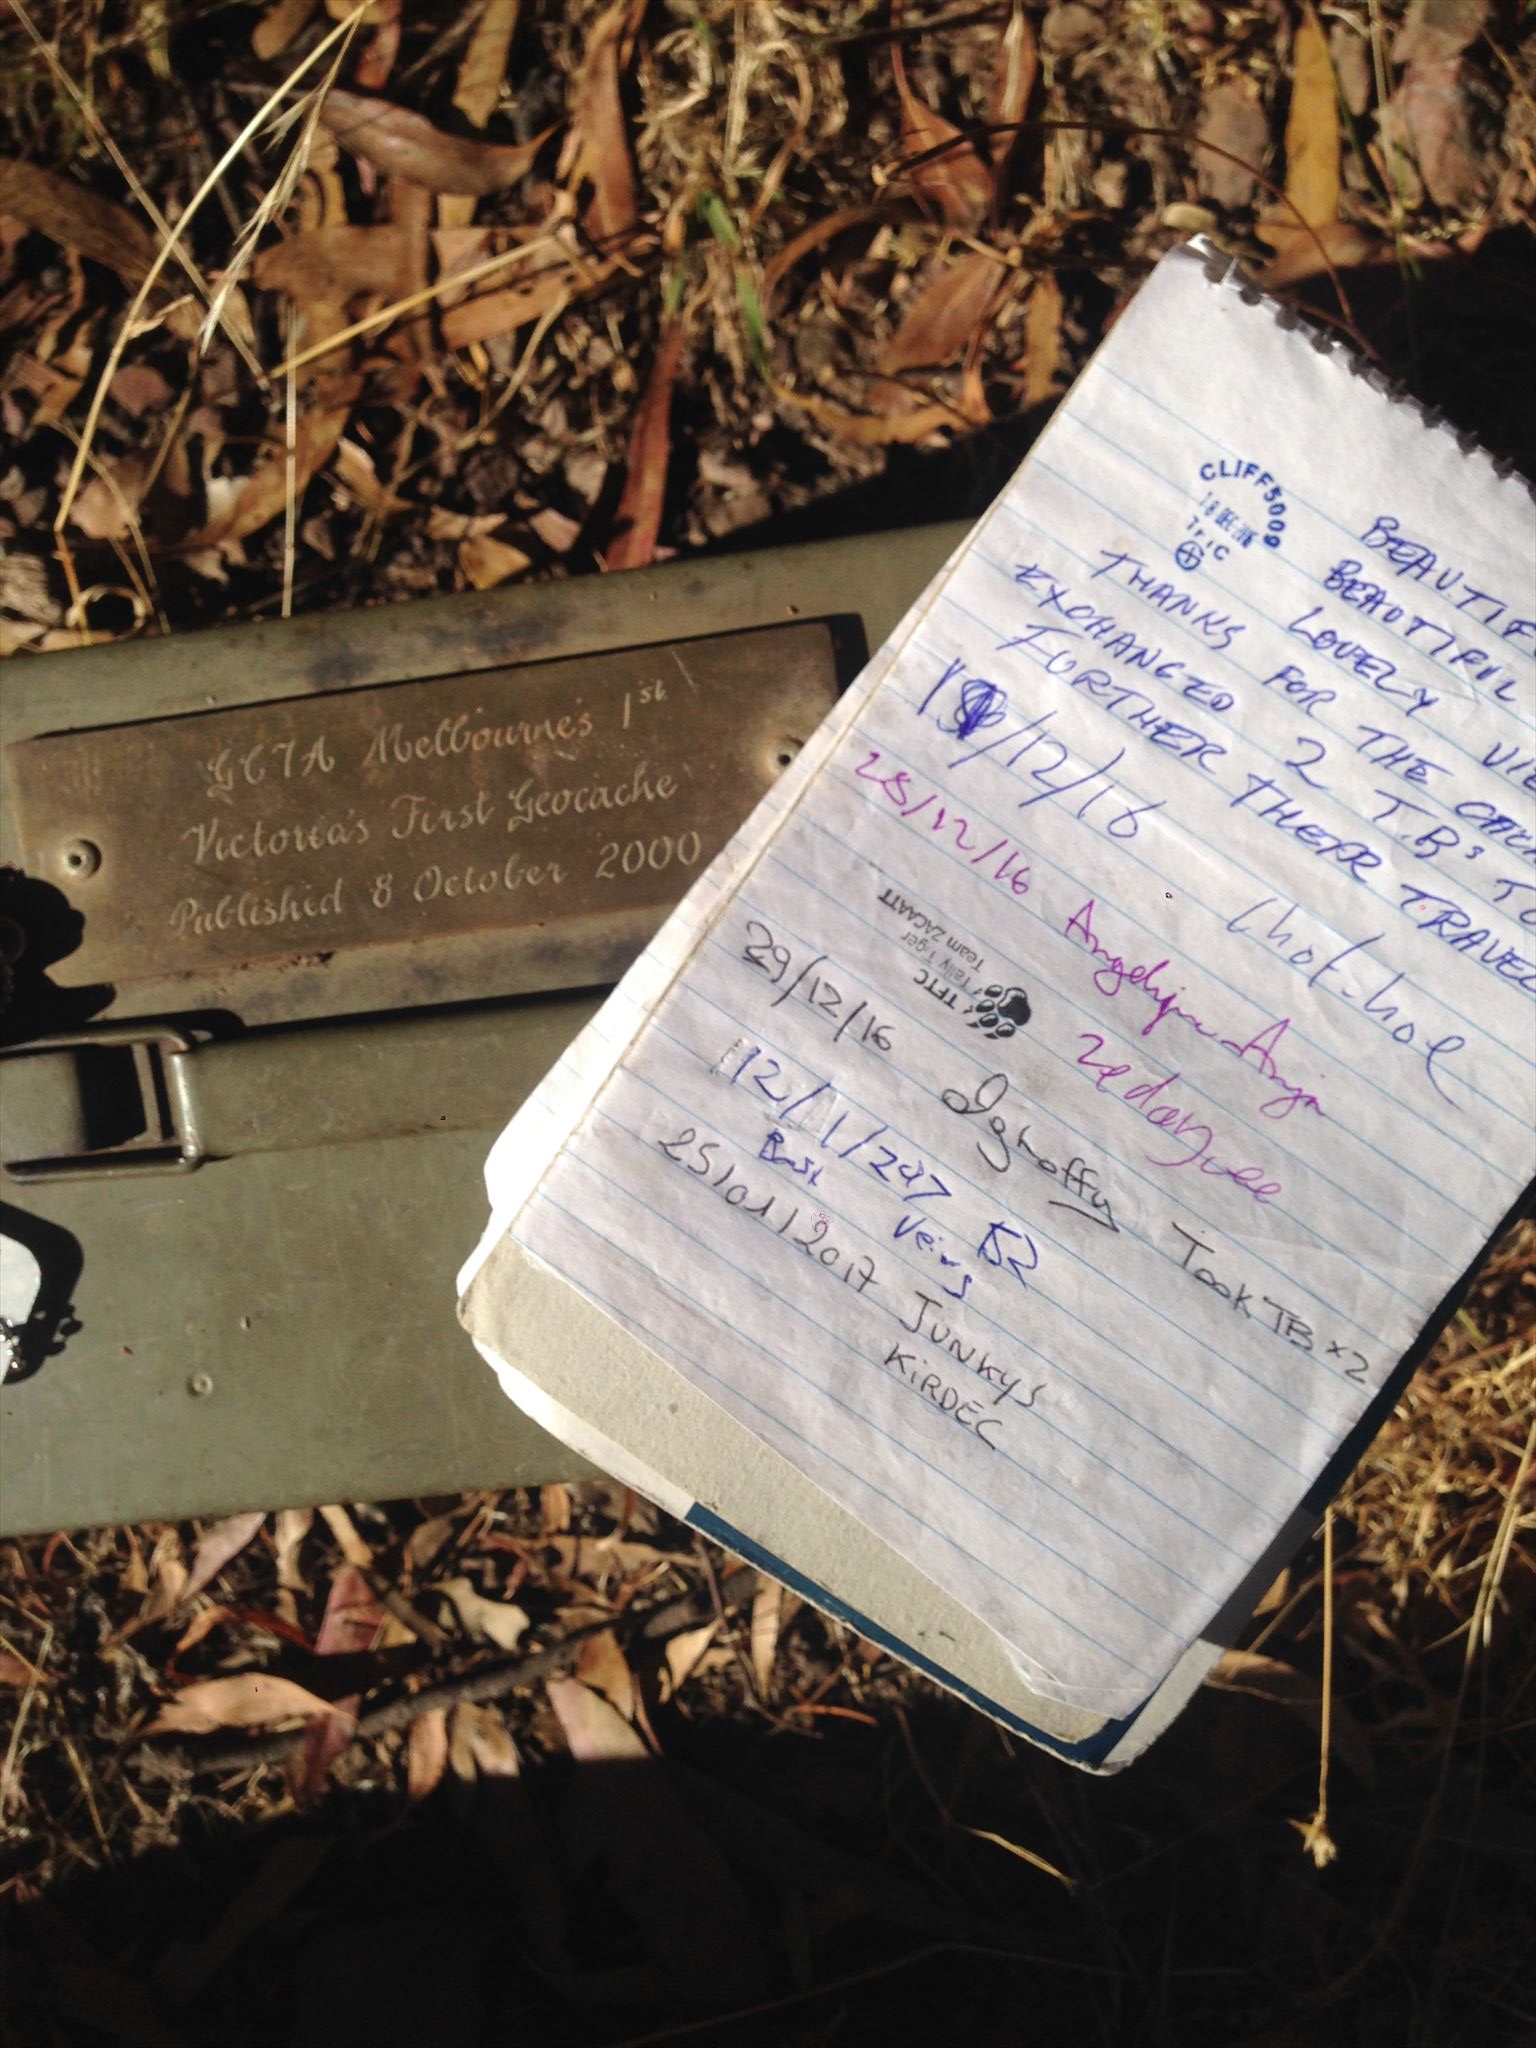 GC7A Melbourne's 1st
Victoria's First Geocache
Published 8 October 2000
CLIFF5009
TFTC
BEAUTIF
BEAUTIFUL
LOVELY VIE
THANKS FOR THE CACH
EXCHANGED 2 T.B's TO
FURTHER THEIR TRAVEL
/12/16
28/12/16
TFTC
Tally Tiger
Team ZACAATT
29/12/16
Took TB x 2
12/1/
Veins
25/01/2017 JUNKYS
KiRDEC